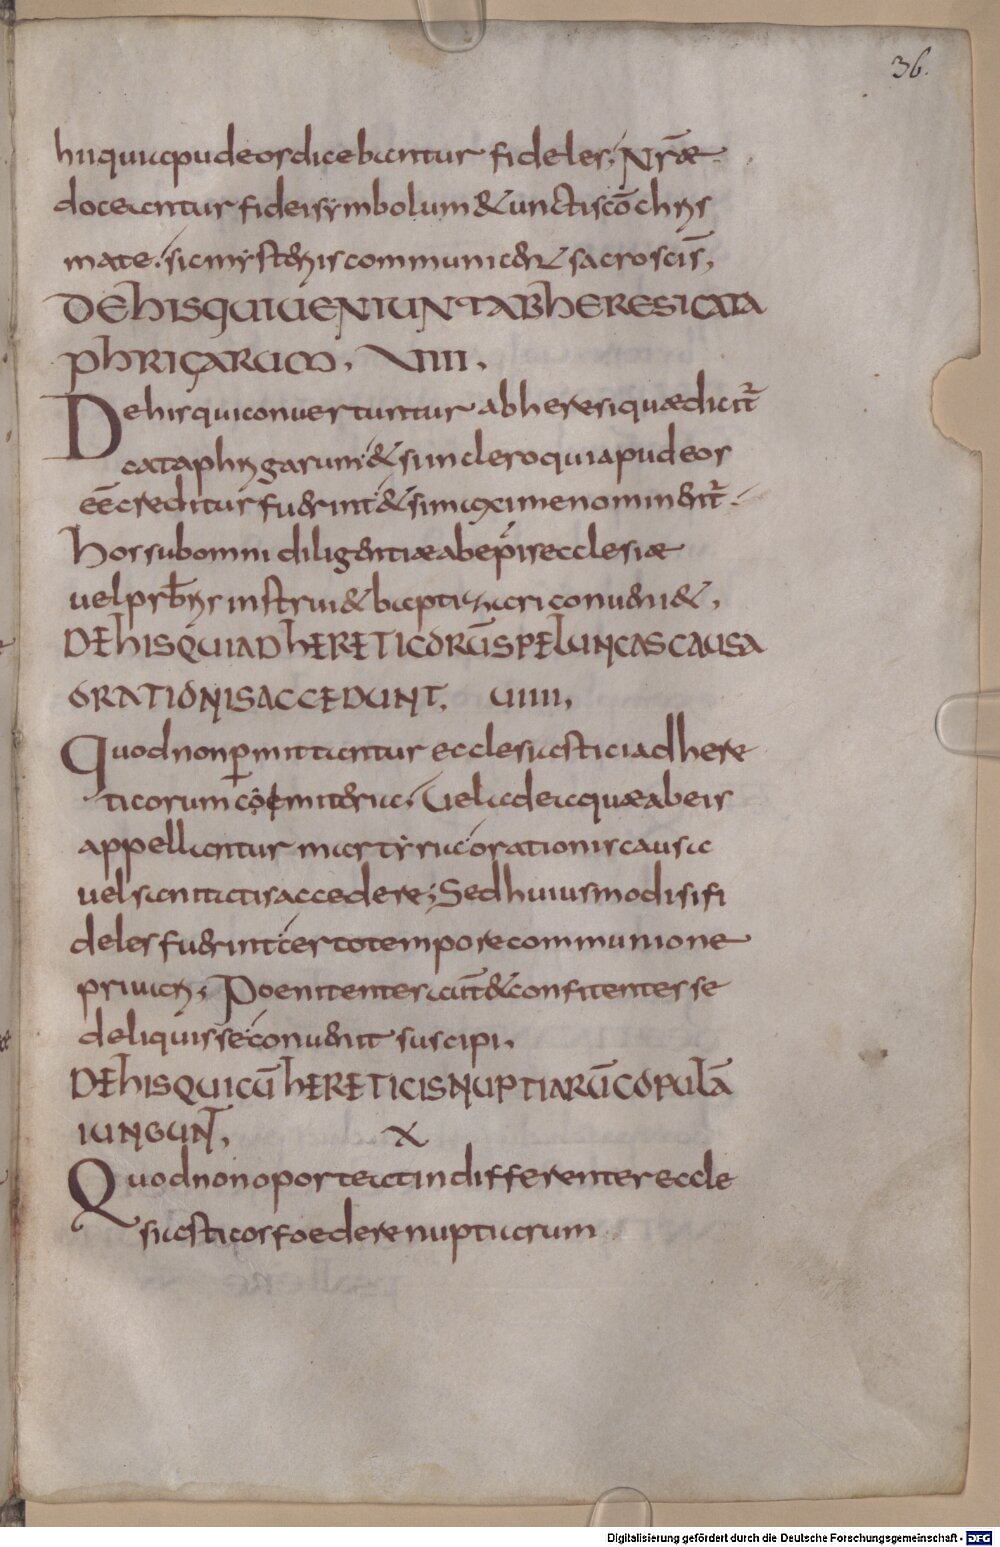 36.
hii qui apud eos dicebantur fideles; Nr̄ae
doceantur fidei symbolum & uncti sc̄o chris
mate. sic mysteriis communicent sacroscīs,
DE HIS QUI UENIUNT AB HERESI CATA
PHRIGARUM. VIIII.
De his qui convertuntur ab heresi quae dicit̄
cataphrygarum & si in clero qui apud eos
eē creditur fuerint & si maxime nominent̄.
Hos sub omni diligentia ab ep̄is ecclesiae
uel prb̄ris instrui & baptizari conuenit,
DE HIS QUI AD HERETICORŪ SPELUNCAS CAUSA
ORATIONIS ACCEDUNT. VIIII,
Quod non permittantur ecclesiastici ad here
ticorum coemiteria. Uel ad ea quae ab eis
appellantur martyria orationis causa
uel sanitatis accedere; Sed huiusmodi si fi
deles fuerint certo tempore communione
priuari; Poenitentes aut̄ & confitentes se
deliquisse conuenit suscipi.
DE HIS QUI CŪ HERETICIS NUPTIARŪ COPULĀ
IUNGUNT̄, X
Quod non oporteat indifferenter eccle
siasticos foedere nuptiarum
Digitalisierung gefördert durch die Deutsche Forschungsgemeinschaft - DFG